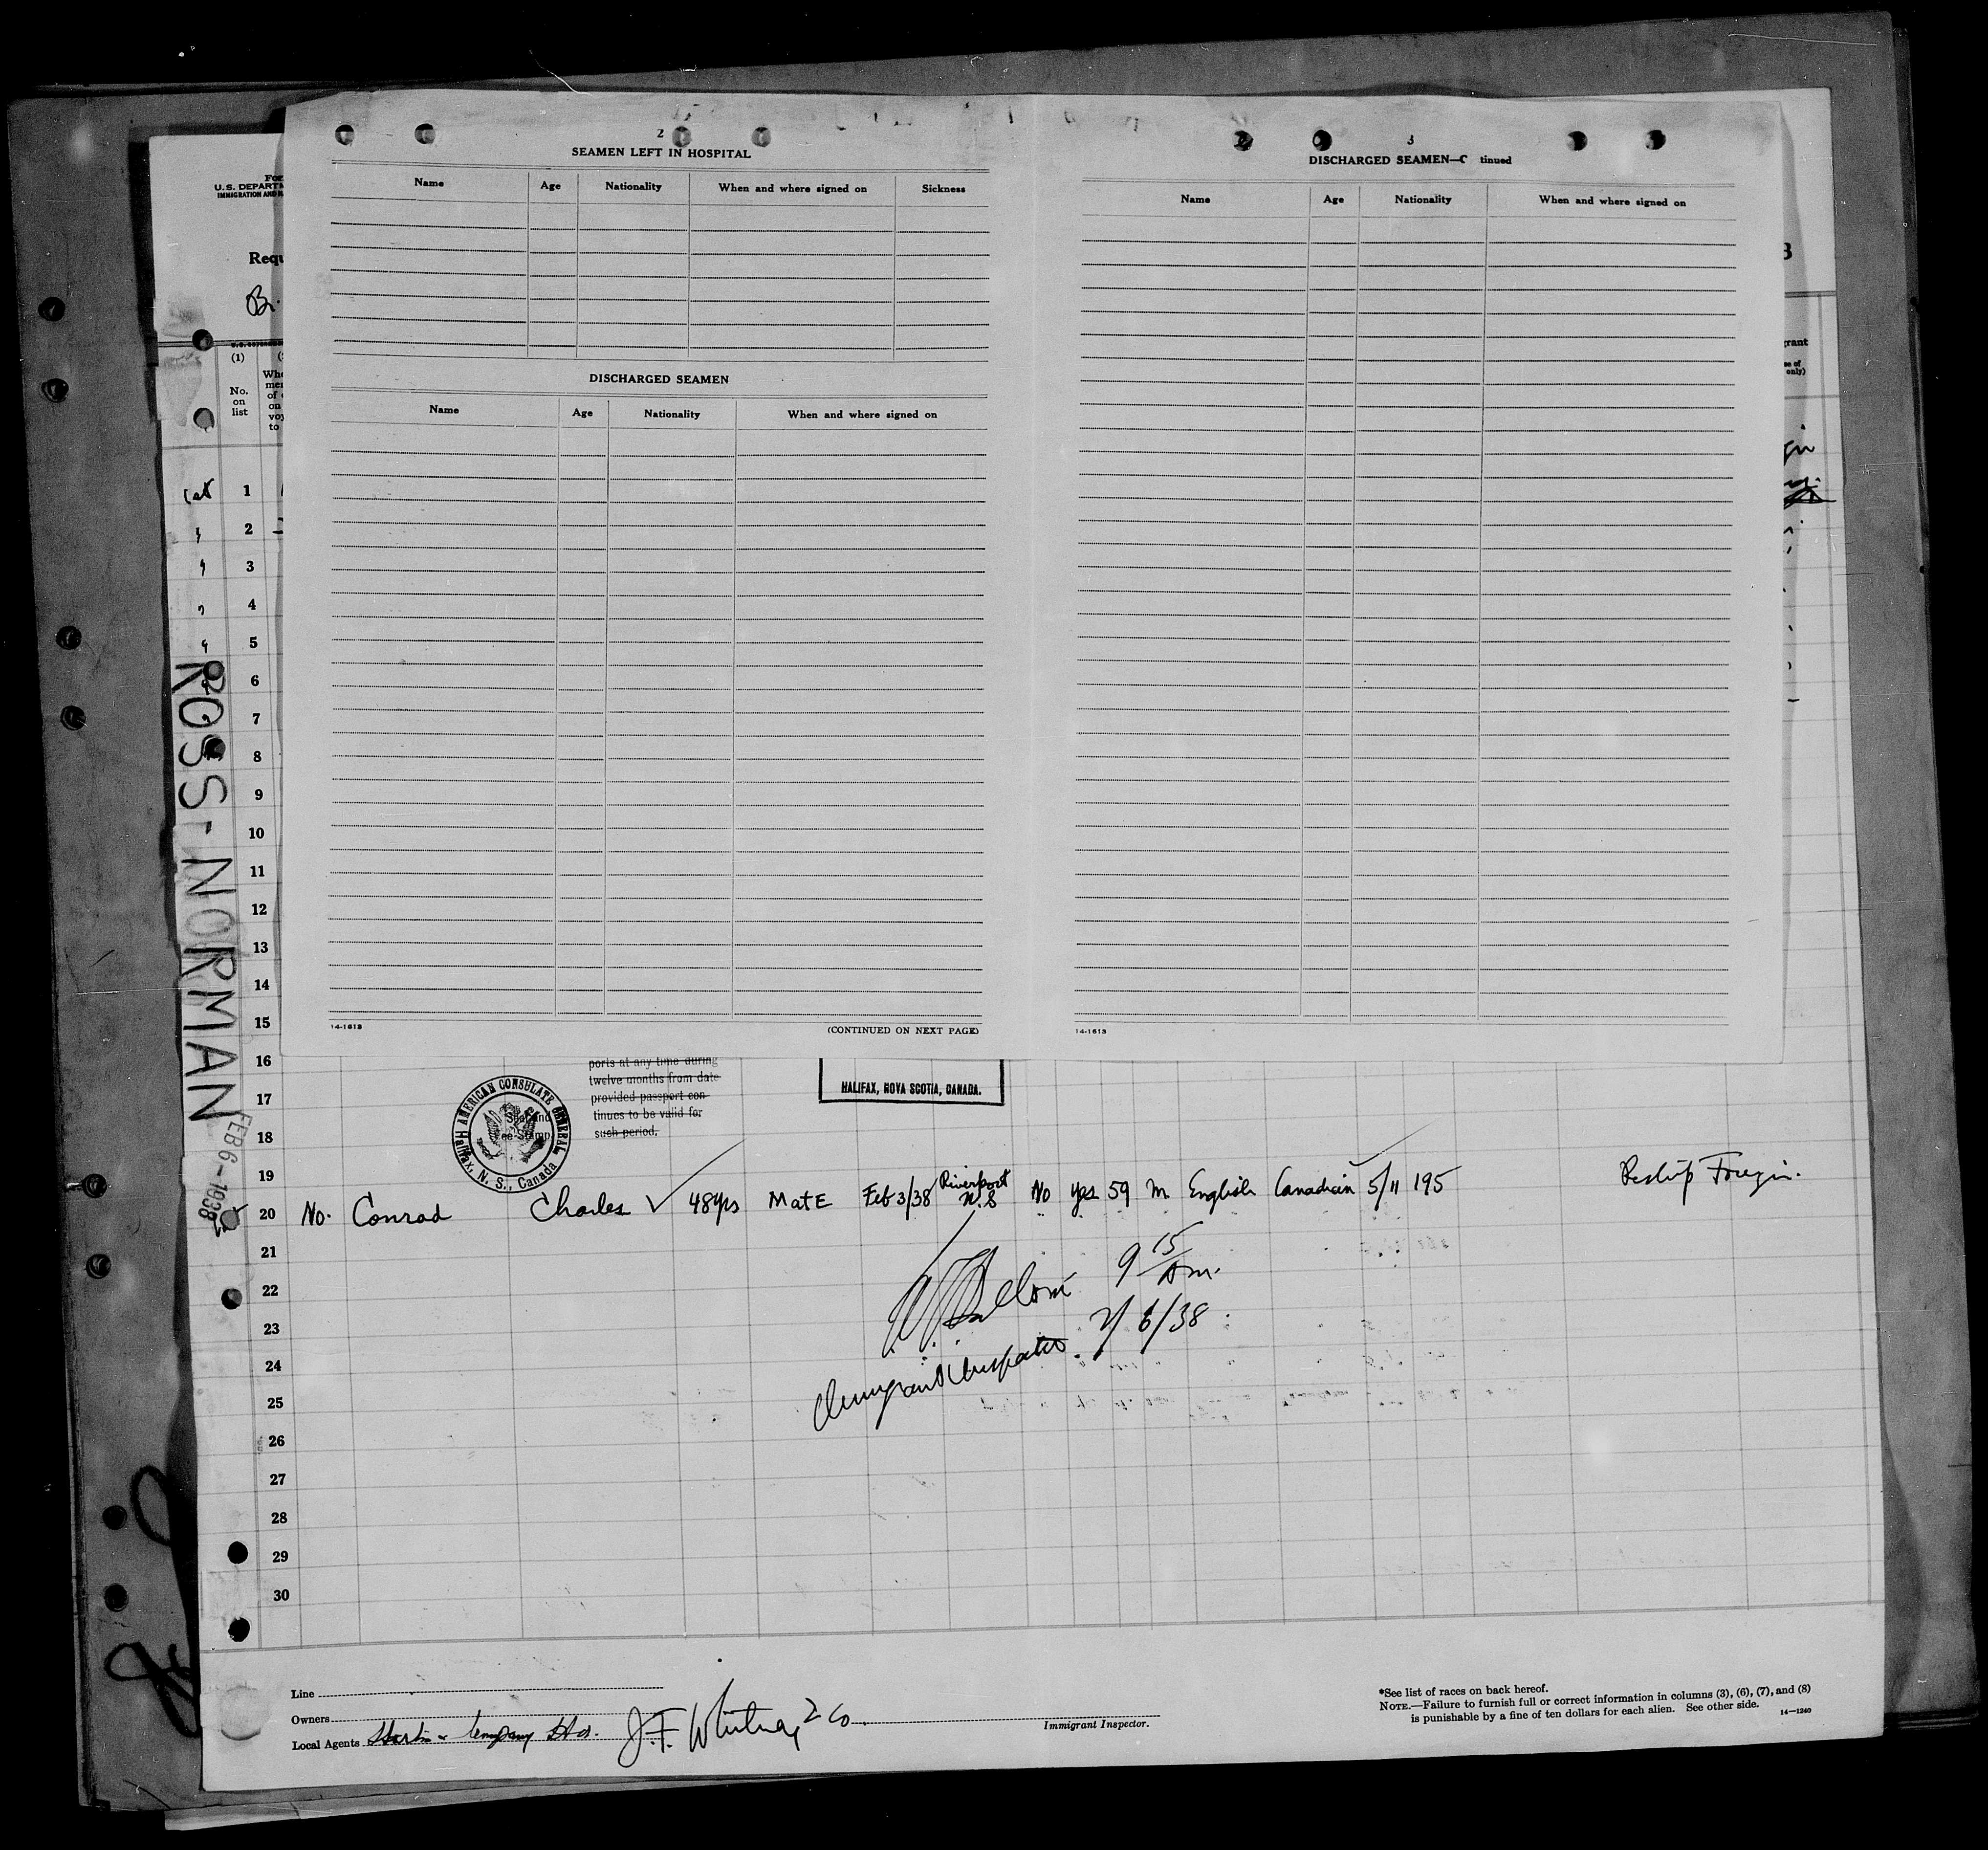 2
SEAMEN LEFT IN HOSPITAL
Name Age Nationality When and where signed on Sickness
DISCHARGED SEAMEN
Name Age Nationality When and where signed on
14-1613 (CONTINUED ON NEXT PAGE)
3
DISCHARGED SEAMEN—C tinued
Name Age Nationality When and where signed on
14-1613
U.S. DEPARTM
IMMIGRATION AND N
Requ
Br.
(1)
No.
on
list
Whe
mem
of
on
voy
to
rant
se of
only)
1
2
3
4
5
6
7
8
9
10
11
12
13
14
15
16
17
18
19
20
21
22
23
24
25
26
27
28
29
30
ROSS-NORMAN
FEB 6-1938
AMERICAN CONSULATE GENERAL
Halifax, N. S., Canada
Seal and
ee Stamp
ports at any time during
twelve months from date
provided passport con-
tinues to be valid for
such period.
HALIFAX, NOVA SCOTIA, CANADA.
No. Conrad Charles ✓ 48yrs Mate Feb 3/38 Riverport N.S No yes 59 M English Canadian 5/11 195 Reship Foreign.
9 15/Am.
2/6/38
Immigrant Inspector.
Line
Owners
Local Agents Company Ltd. J.F. Whitney & Co.
Immigrant Inspector.
*See list of races on back hereof.
NOTE.—Failure to furnish full or correct information in columns (3), (6), (7), and (8)
is punishable by a fine of ten dollars for each alien. See other side.
14—1240